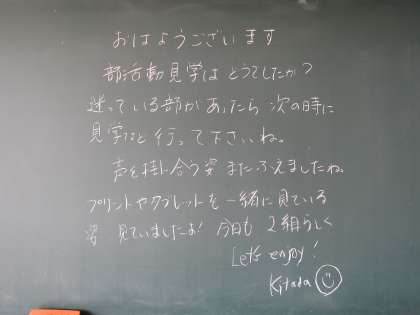 おはようございます
部活動見学はどうでしたか?
迷っている部があったら次の時に
見学に行って下さいね。
声を掛け合う姿またふえましたね。
プリントやタブレットを一緒に見ている
姿 見ていましたよ! 今日も 2組らしく
Let's enjoy!
Kitada